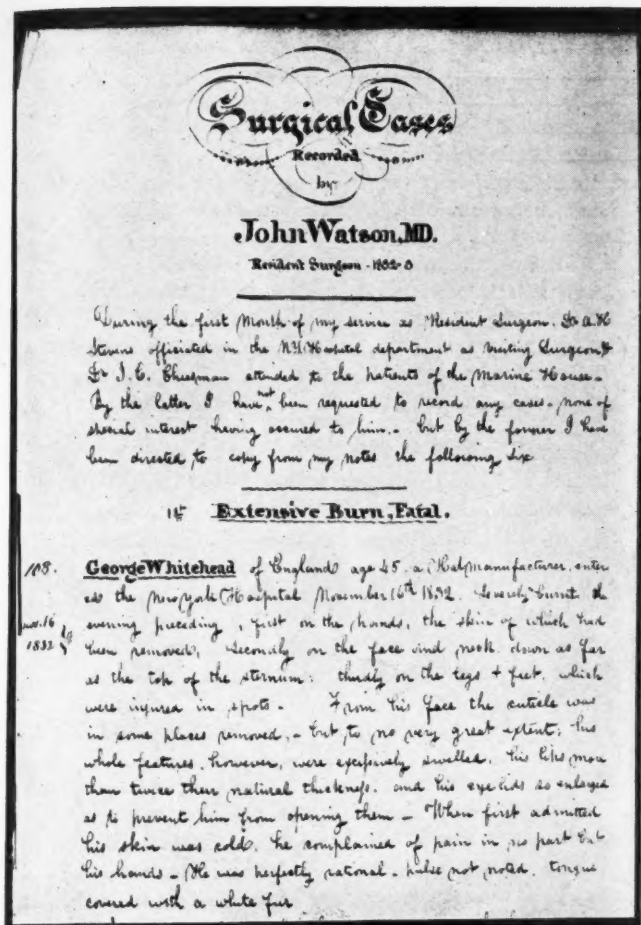 Surgical Cases
Recorded
by
John Watson, MD.
Resident Surgeon - 1832-3
During the first Month of my service as Resident Surgeon. Dr A.H
Stevens officiated in the N.Y. Hospital department as visiting Surgeon &
Dr J. C. Cheesman attended to the patients of the Marine House -
By the latter I have not been requested to record any cases - none of
special interest having occured to him. - but by the former I have
been directed to copy from my notes the following six
1st Extensive Burn, Fatal.
108. George Whitehead of England age 45. a Hat manufacturer, enter
ed the New York Hospital November 16th 1832. Severely burnt the
nov. 16 evening preceding, first on the hands, the skin of which had
1832 been removed, Secondly on the face and neck down as far
as the top of the sternum: thirdly on the legs + feet, which
were injured in spots - From his face the cuticle was
in some places removed, - but to no very great extent; his
whole features, however, were excessively swelled, his lips more
than twice their natural thickness. and his eyelids so enlarged
as to prevent him from opening them - When first admitted
his skin was cold. he complained of pain in no part but
his hands - He was perfectly rational. pulse not noted. tongue
covered with a white fur